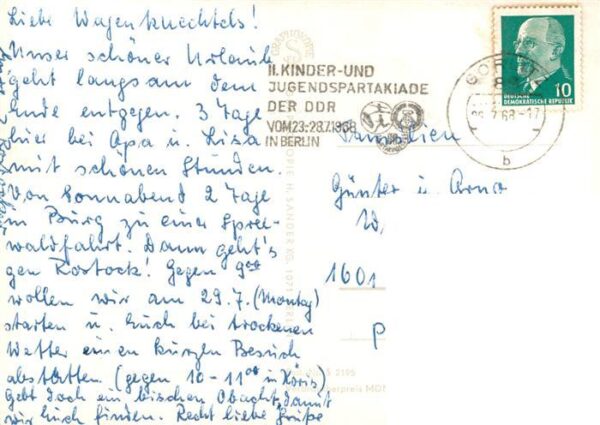 Liebe Wagenknechtels!
Unser schöner Urlaub
geht langsam dem
Ende entgegen. 3 Tage
hier bei Opa u. Lisa
mit schönen Stunden.
Von Sonnabend 2 Tage
in Burg zu einer Spree-
waldfahrt. Dann geht's
gen Rostock! Gegen 9⁰⁰
wollen wir am 29.7. (Montag)
starten u. Euch bei trockenem
Wetter einen kurzen Besuch
abstatten (gegen 10-11⁰⁰ in Köris)
Gebt doch ein bischen Obacht, damit
wir Euch finden. Recht liebe Grüße
II. KINDER-UND
JUGENDSPARTAKIADE
DER DDR
VOM 23.-28.7.1968
IN BERLIN
7.68-17
b
DEUTSCHE
DEMOKRATISCHE REPUBLIK
10
Familien
Günter u. Arno
W
1601
P
H. SANDER KG, 1071
S 2195